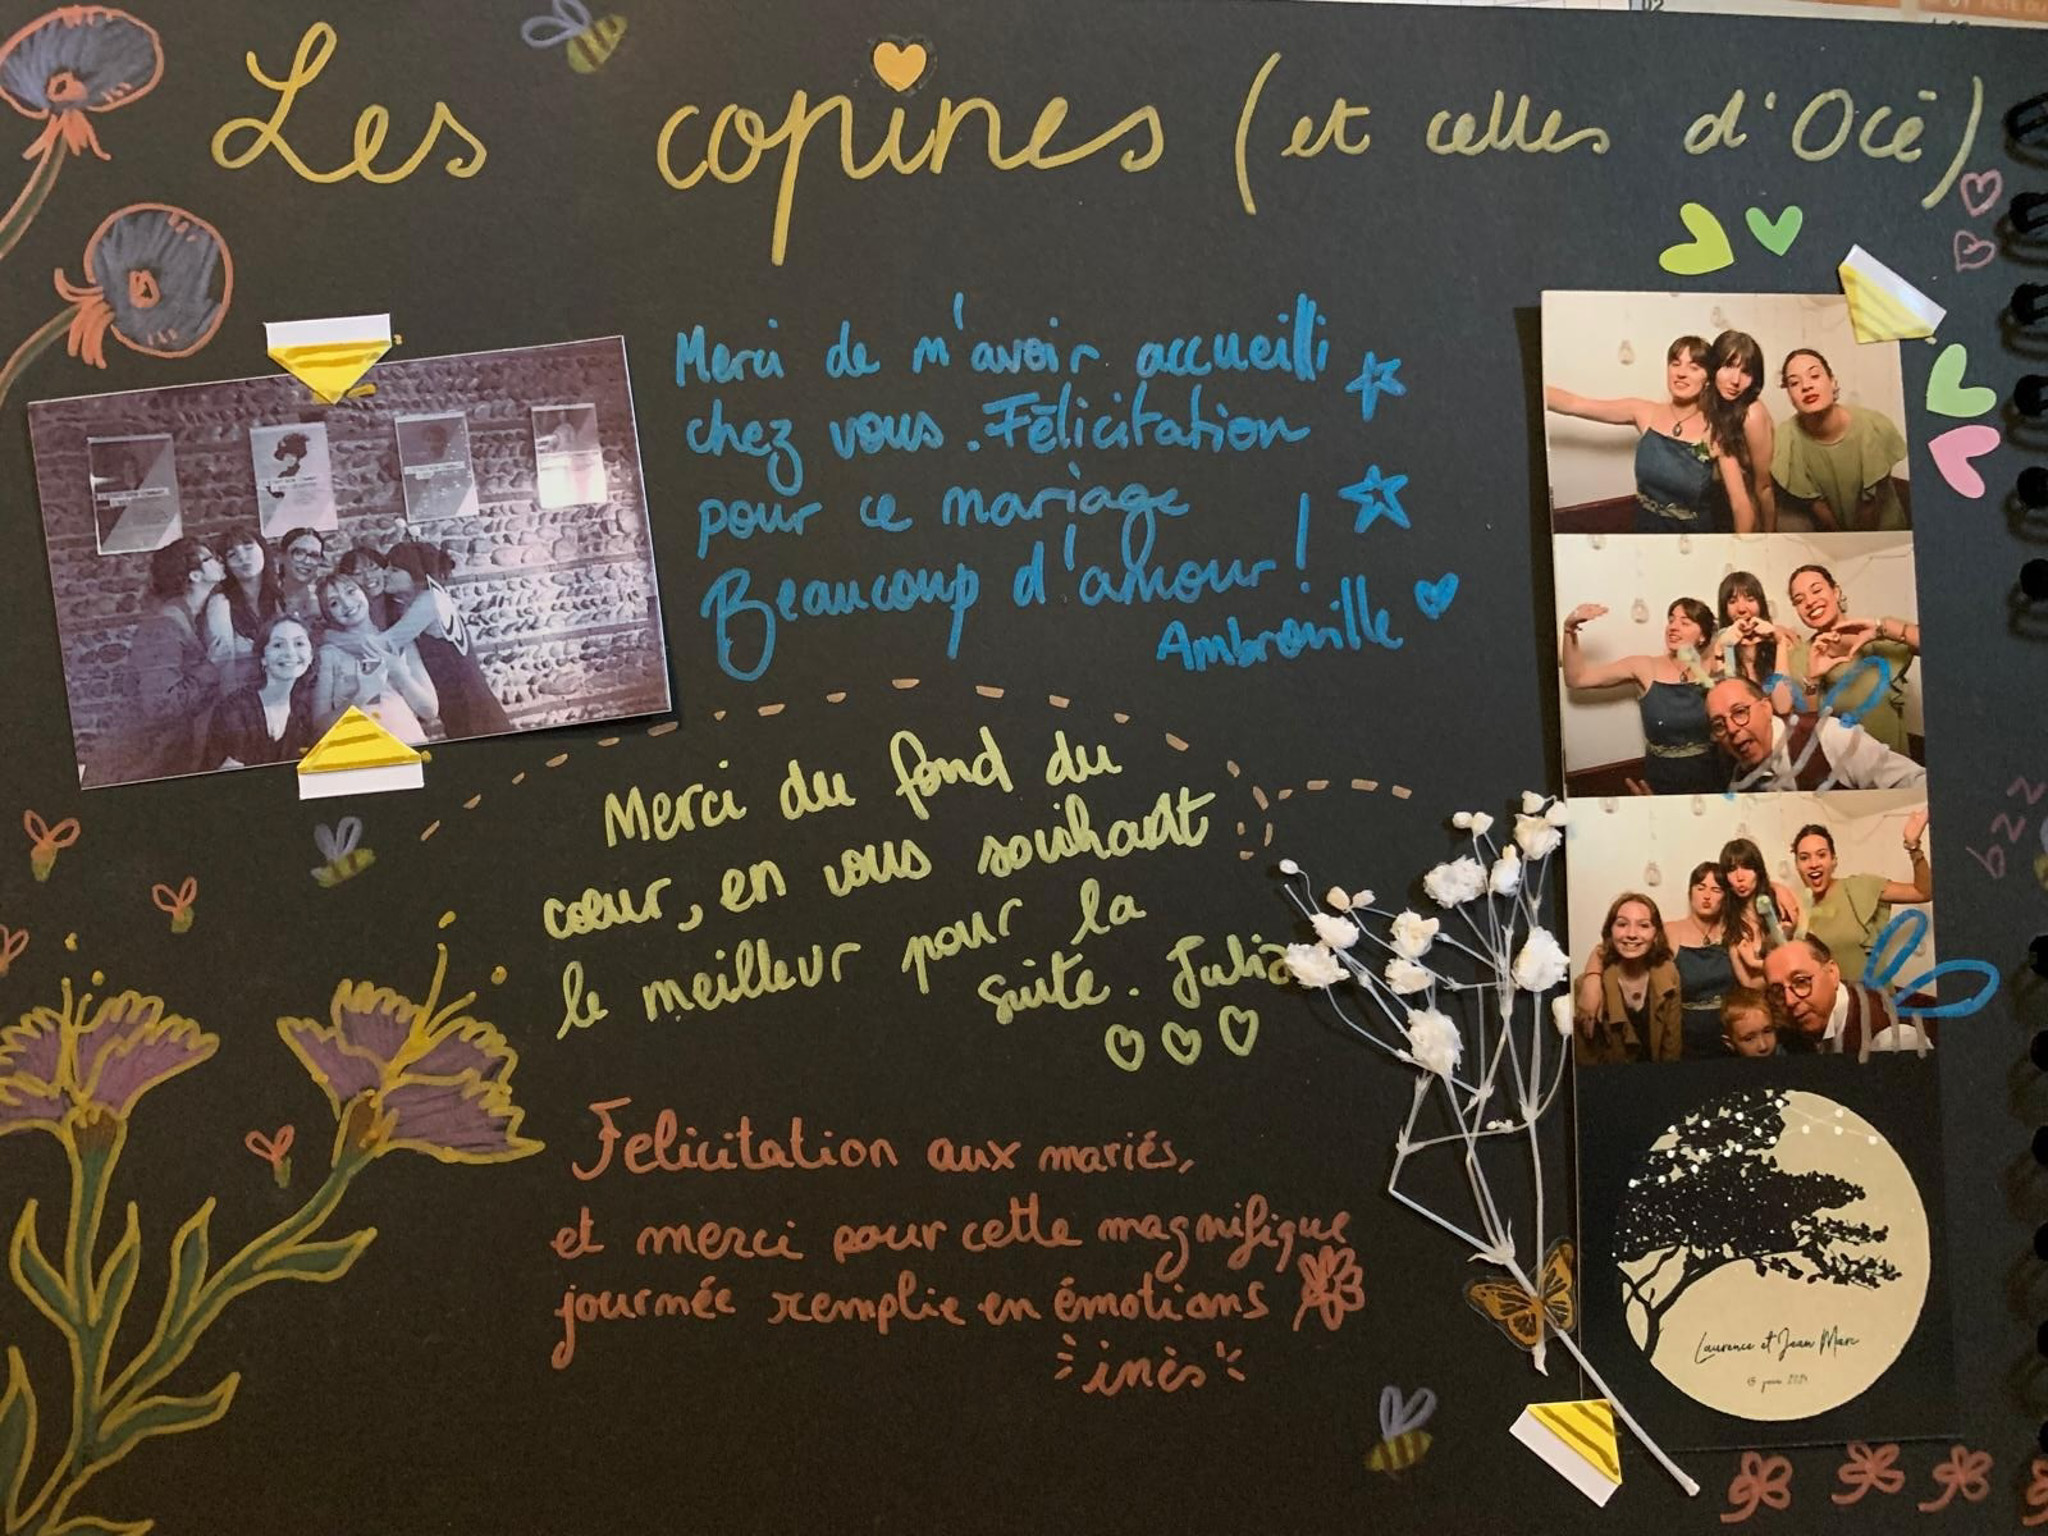 Les copines (et celles d'Océ)
Merci de m'avoir accueilli
chez vous. Félicitation
pour ce mariage
Beaucoup d'amour !
Ambroville
Merci du fond du
cœur, en vous souhaitant
le meilleur pour la
suite. Julia
Felicitation aux mariés,
et merci pour cette magnifique
journée remplie en émotions
inès
Laurence et Jean Marc
bzz
02